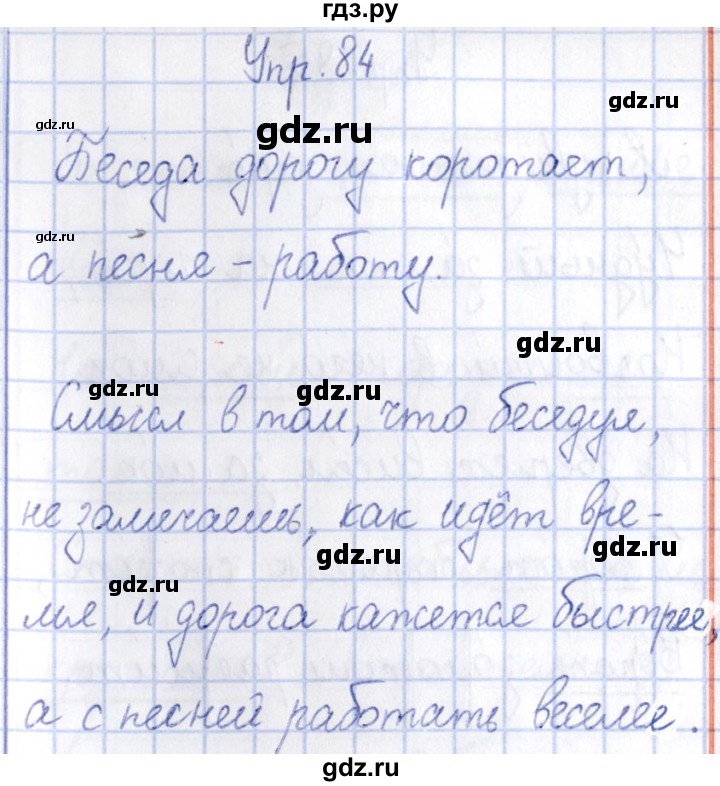 гдз.ру
Упр. 84
gdz.ru
gdz.ru
gdz.ru
Беседа дорогу коротает,
gdz.ru
а песня – работу.
gdz.ru
gdz.ru
gdz.ru
Смысл в том, что беседуя,
не замечаешь, как идёт вре-
gdz.ru
gdz.ru
gdz.ru
мя, и дорога кажется быстрее,
а с песней работать веселее.
gdz.ru